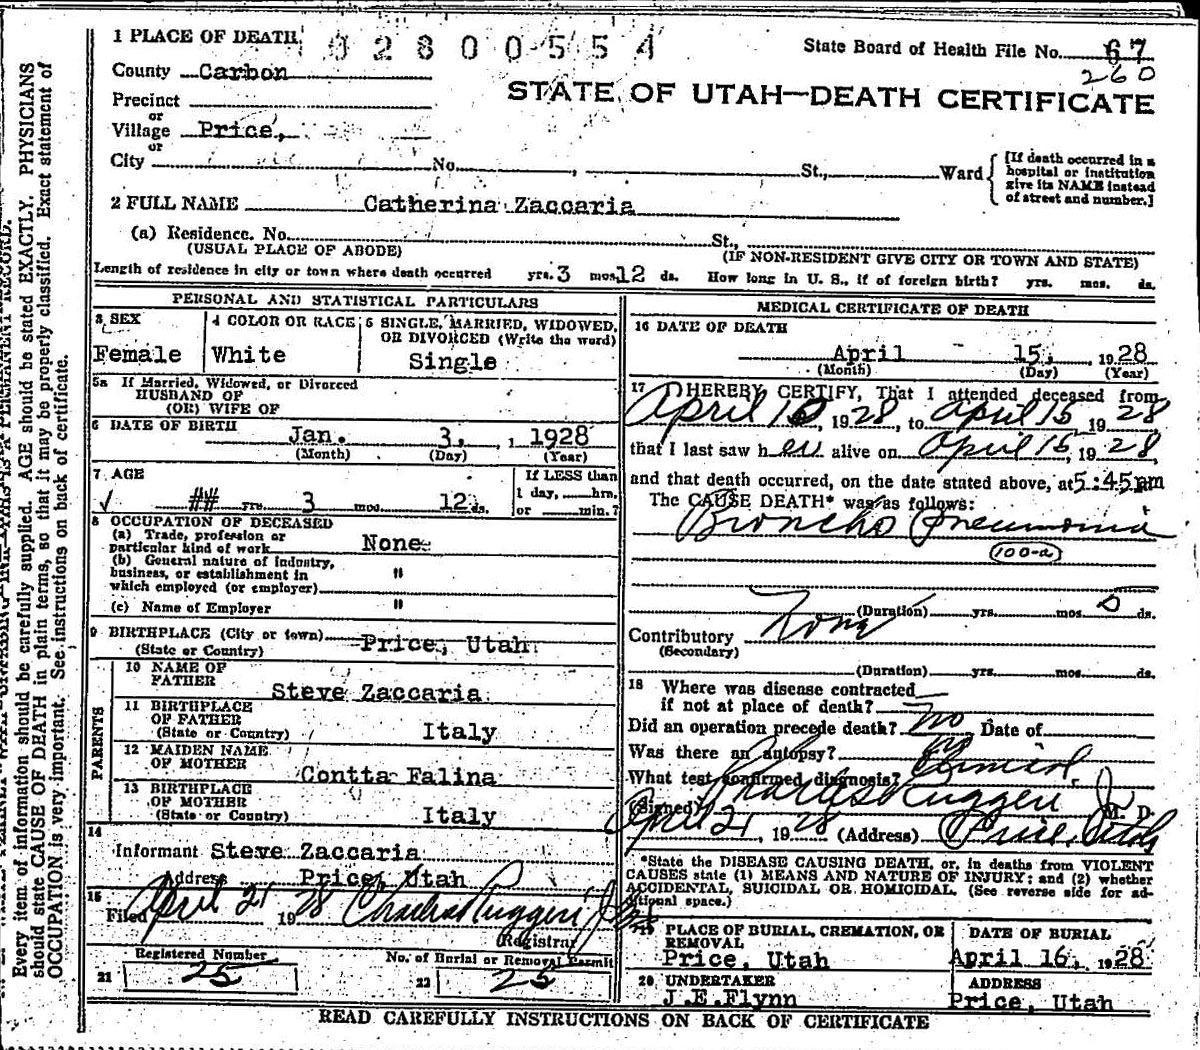 1 PLACE OF DEATH
02800554
State Board of Health File No. 67
260
County Carbon
STATE OF UTAH—DEATH CERTIFICATE
Precinct
or
Village Price,
or
City No. St., Ward
[If death occurred in a
hospital or institution
give its NAME instead
of street and number.]
2 FULL NAME Catherina Zaccaria
(a) Residence. No. St.,
(USUAL PLACE OF ABODE) (IF NON-RESIDENT GIVE CITY OR TOWN AND STATE)
Length of residence in city or town where death occurred yrs. 3 mos. 12 ds. How long in U. S., if of foreign birth? yrs. mos. ds.
PERSONAL AND STATISTICAL PARTICULARS
3 SEX
Female
4 COLOR OR RACE
White
5 SINGLE, MARRIED, WIDOWED,
OR DIVORCED (Write the word)
Single
5a If Married, Widowed, or Divorced
HUSBAND OF
(OR) WIFE OF
6 DATE OF BIRTH Jan. 3, 1928
(Month) (Day) (Year)
7 AGE
## yrs. 3 mos. 12 ds.
If LESS than
1 day, hrs.
or min.?
8 OCCUPATION OF DECEASED
(a) Trade, profession or
particular kind of work None
(b) General nature of industry,
business, or establishment in "
which employed (or employer)
(c) Name of Employer "
9 BIRTHPLACE (City or town) Price, Utah
(State or Country)
PARENTS
10 NAME OF
FATHER Steve Zaccaria
11 BIRTHPLACE
OF FATHER
(State or Country) Italy
12 MAIDEN NAME
OF MOTHER Contta Falina
13 BIRTHPLACE
OF MOTHER
(State or Country) Italy
14
Informant Steve Zaccaria
Address Price, Utah
15
Filed April 21 1928 Charles Ruggeri Jr
Registrar
Registered Number
21 25
No. of Burial or Removal Permit
22 25
MEDICAL CERTIFICATE OF DEATH
16 DATE OF DEATH
April 15, 1928
(Month) (Day) (Year)
17 I HEREBY CERTIFY, That I attended deceased from
April 10, 1928, to April 15 1928
that I last saw her alive on April 15, 1928,
and that death occurred, on the date stated above, at 5:45 pm
The CAUSE DEATH* was as follows:
Broncho Pneumonia
100-a
(Duration) yrs. mos. 5 ds.
Contributory None
(Secondary)
(Duration) yrs. mos. ds.
18 Where was disease contracted
if not at place of death?
Did an operation precede death? no Date of
Was there an autopsy?
What test confirmed diagnosis? Clinical.
(Signed) Charles Ruggeri Jr M. D.
April 21, 1928 (Address) Price, Utah
*State the DISEASE CAUSING DEATH, or, in deaths from VIOLENT
CAUSES state (1) MEANS AND NATURE OF INJURY; and (2) whether
ACCIDENTAL, SUICIDAL OR HOMICIDAL. (See reverse side for ad-
ditional space.)
PLACE OF BURIAL, CREMATION, OR
REMOVAL
Price, Utah
DATE OF BURIAL
April 16, 1928
20 UNDERTAKER
J.E.Flynn
ADDRESS
Price, Utah
READ CAREFULLY INSTRUCTIONS ON BACK OF CERTIFICATE
Every item of information should be carefully supplied. AGE should be stated EXACTLY. PHYSICIANS
should state CAUSE OF DEATH in plain terms, so that it may be properly classified. Exact statement of
OCCUPATION is very important. See instructions on back of certificate.